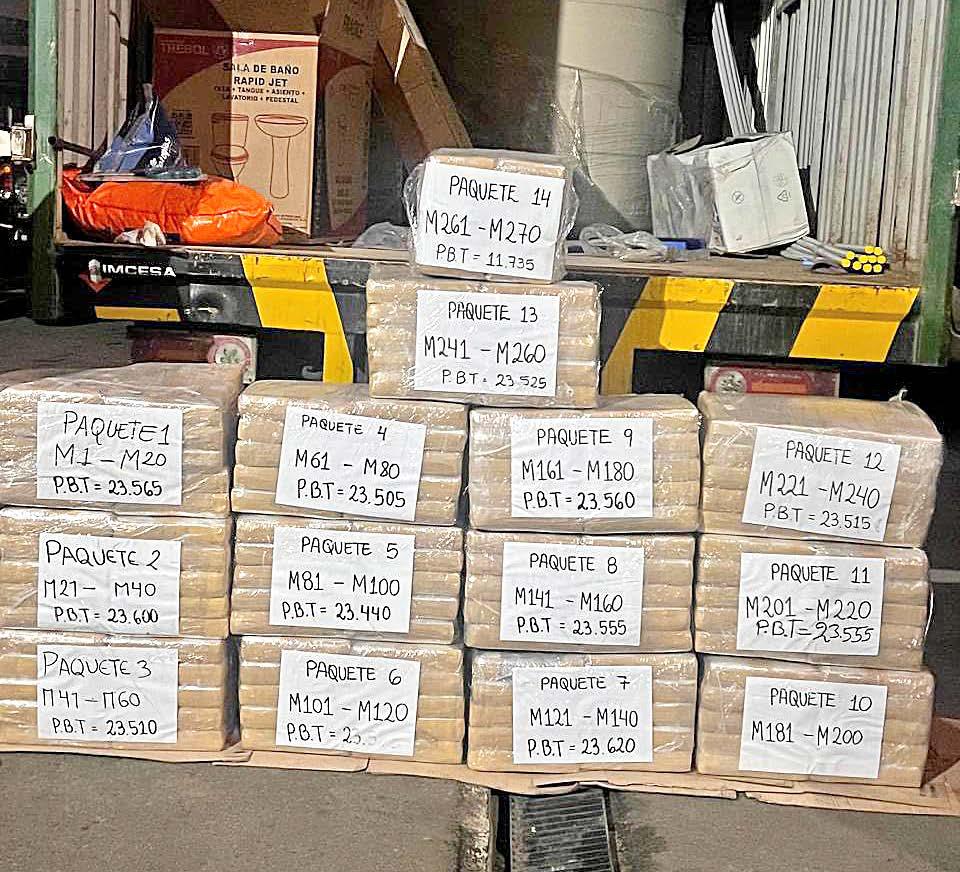 TREBOL
SALA DE BAÑO
RAPID JET
TANQUE + ASIENTO +
LAVATORIO + PEDESTAL
IMCESA
PAQUETE 14
M261 - M270
P.B.T = 11.735
PAQUETE 13
M241 - M260
P.B.T = 23.525
PAQUETE 1
M1 - M20
P.B.T = 23.565
PAQUETE 4
M61 - M80
P.B.T = 23.505
PAQUETE 9
M161 - M180
P.B.T = 23.560
PAQUETE 12
M221 - M240
P.B.T = 23.515
PAQUETE 2
M21 - M40
P.B.T = 23.600
PAQUETE 5
M81 - M100
P.B.T = 23.440
PAQUETE 8
M141 - M160
P.B.T = 23.555
PAQUETE 11
M201 - M220
P.B.T = 23.555
PAQUETE 3
M41 - M60
P.B.T = 23.510
PAQUETE 6
M101 - M120
P.B.T =
PAQUETE 7
M121 - M140
P.B.T = 23.620
PAQUETE 10
M181 - M200